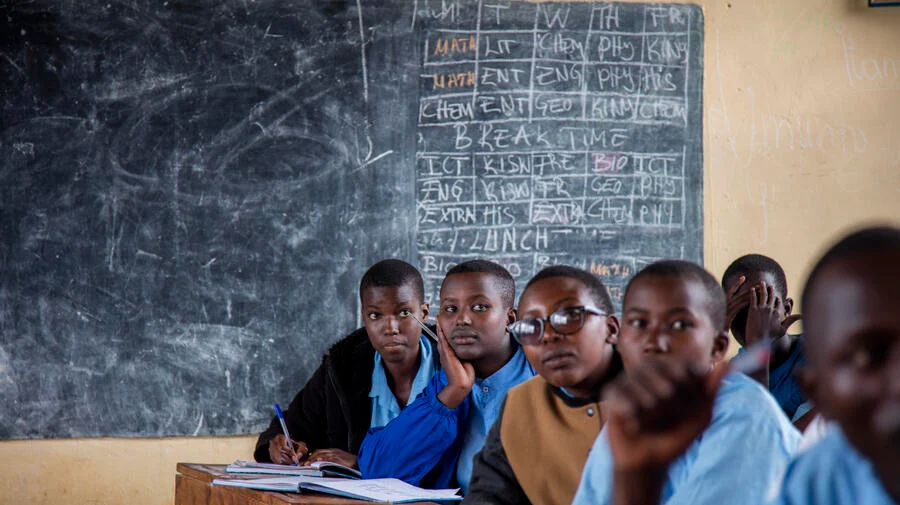 MU T W TH FR
MATH LIT CHEM PHY KINY
MATH ENT ENG PHY HIS
CHEM ENT GEO KINY CHEM
BREAK TIME
ICT KISW FRE BIO ICT
ENG KISW FR GEO PHY
EXTRA HIS EXTRA CHEM PHY
LUNCH
BIO MATH